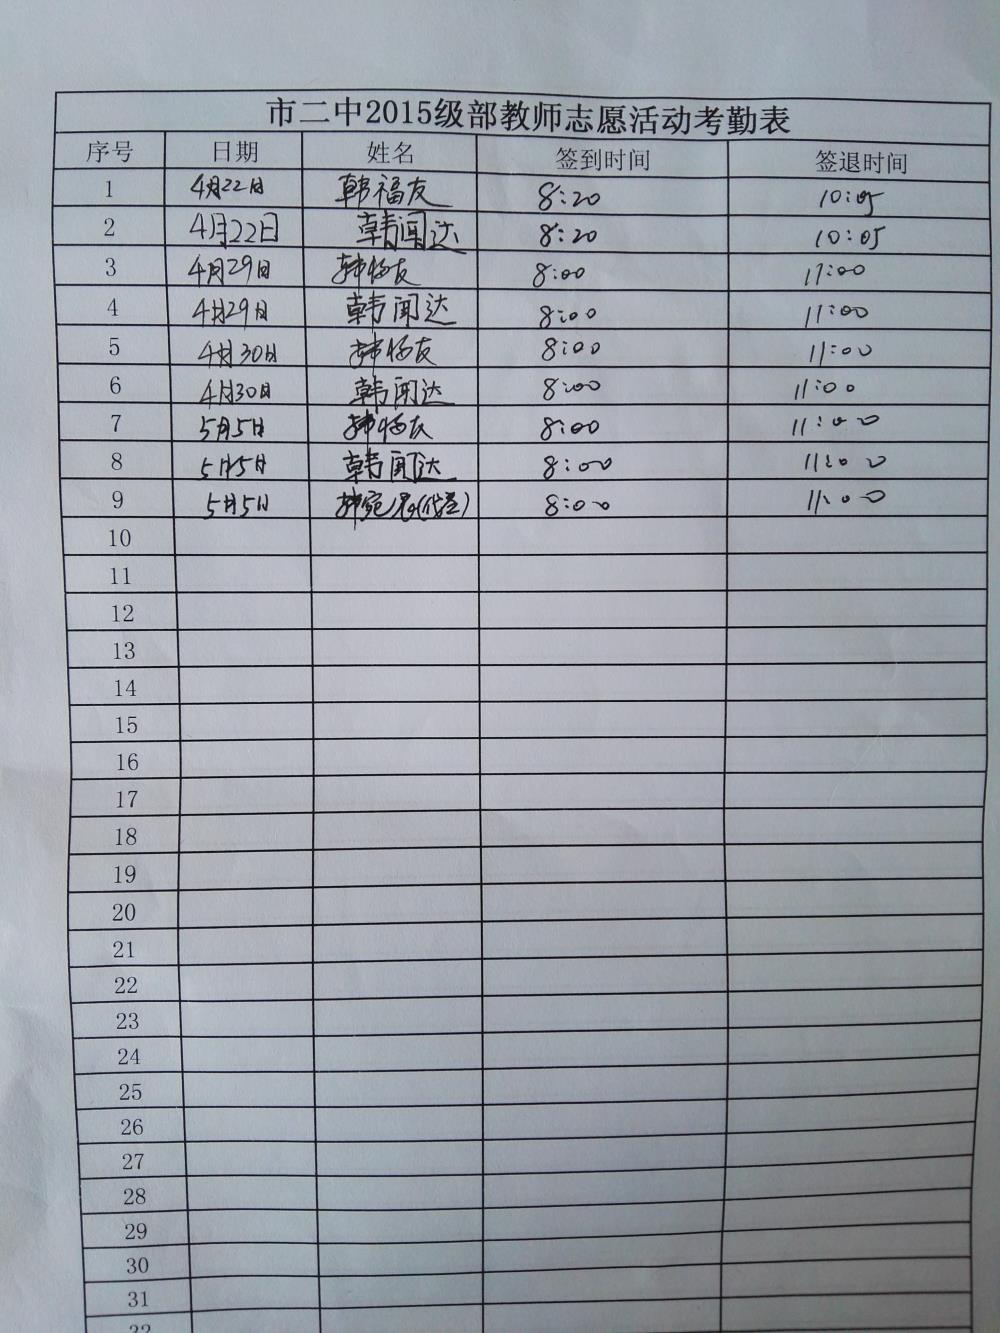 市二中2015级部教师志愿活动考勤表
序号 日期 姓名 签到时间 签退时间
1 4月22日 韩福友 8:20 10:05
2 4月22日 韩闻达 8:20 10:05
3 4月29日 韩福友 8:00 11:00
4 4月29日 韩闻达 8:00 11:00
5 4月30日 韩福友 8:00 11:00
6 4月30日 韩闻达 8:00 11:00
7 5月5日 韩福友 8:00 11:00
8 5月5日 韩闻达 8:00 11:00
9 5月5日 韩宛 8:00 11:00
10
11
12
13
14
15
16
17
18
19
20
21
22
23
24
25
26
27
28
29
30
31
32